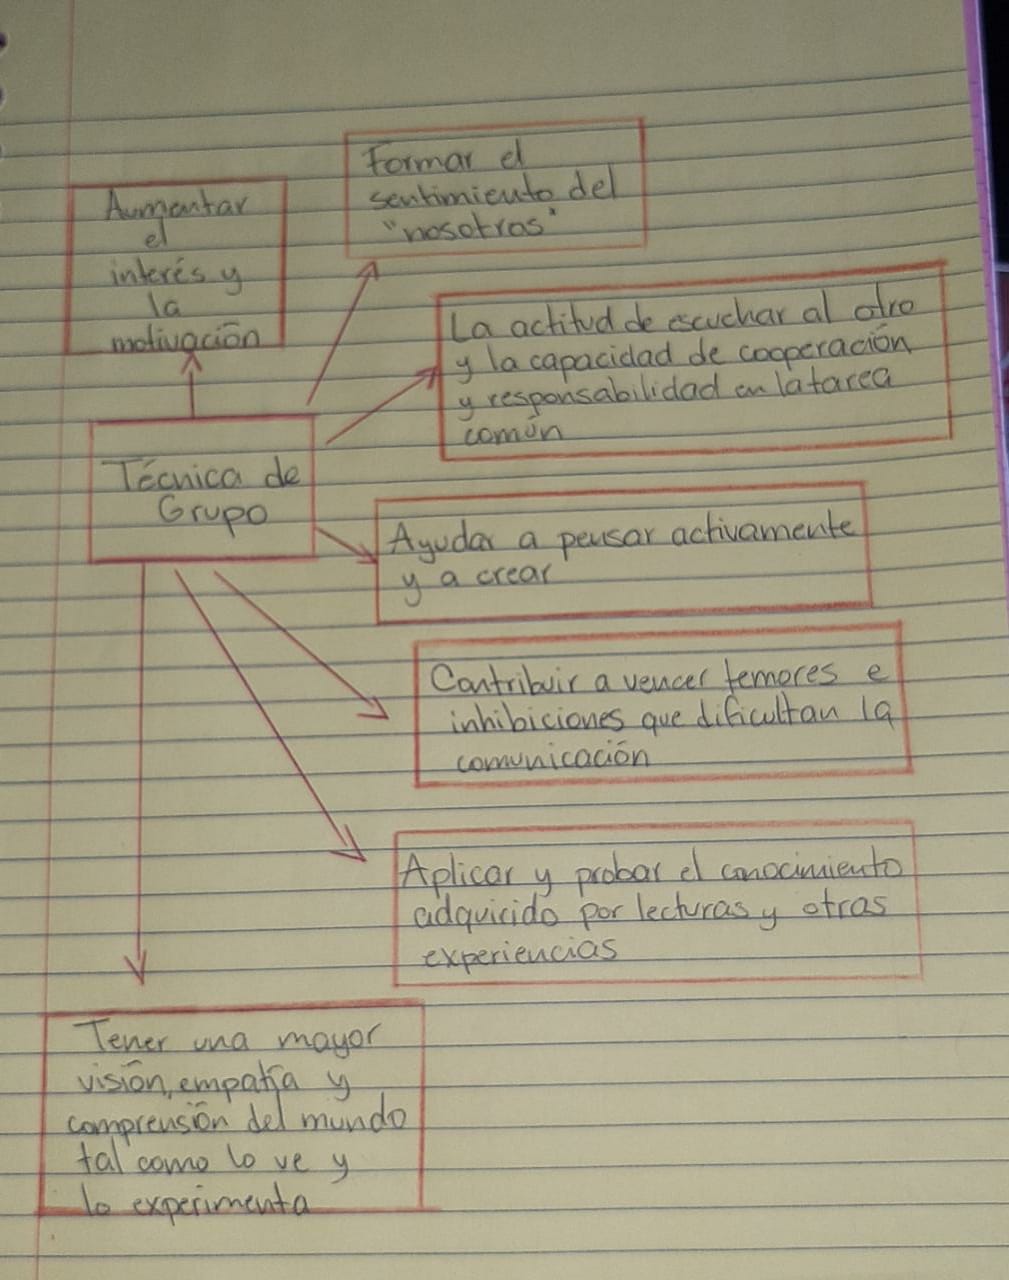 Formar el
sentimiento del
"nosotros"
Aumentar
el
interés y
la
motivación
La actitud de escuchar al otro
y la capacidad de cooperación
y responsabilidad en la tarea
común
Técnica de
Grupo
Ayudar a pensar activamente
y a crear
Contribuir a vencer temores e
inhibiciones que dificultan la
comunicación
Aplicar y probar el conocimiento
adquirido por lecturas y otras
experiencias
Tener una mayor
visión, empatía y
comprensión del mundo
tal como lo ve y
lo experimenta